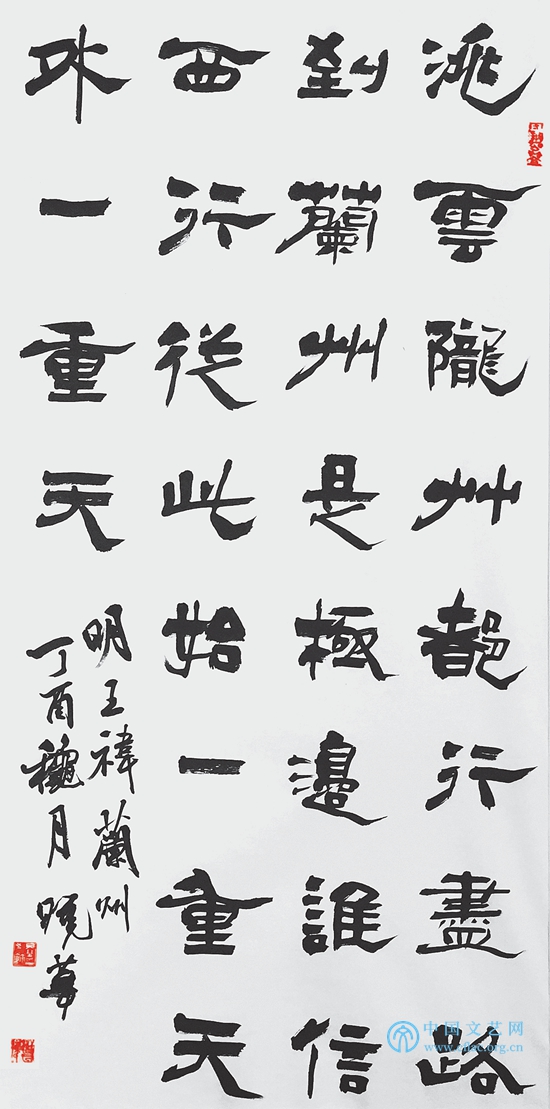 洮雲隴艸都行盡路
到蘭州是極邊誰信
西行從此始一重天
外一重天
明王禕蘭州
丁酉龝月
中国文艺网
www.cflac.org.cn